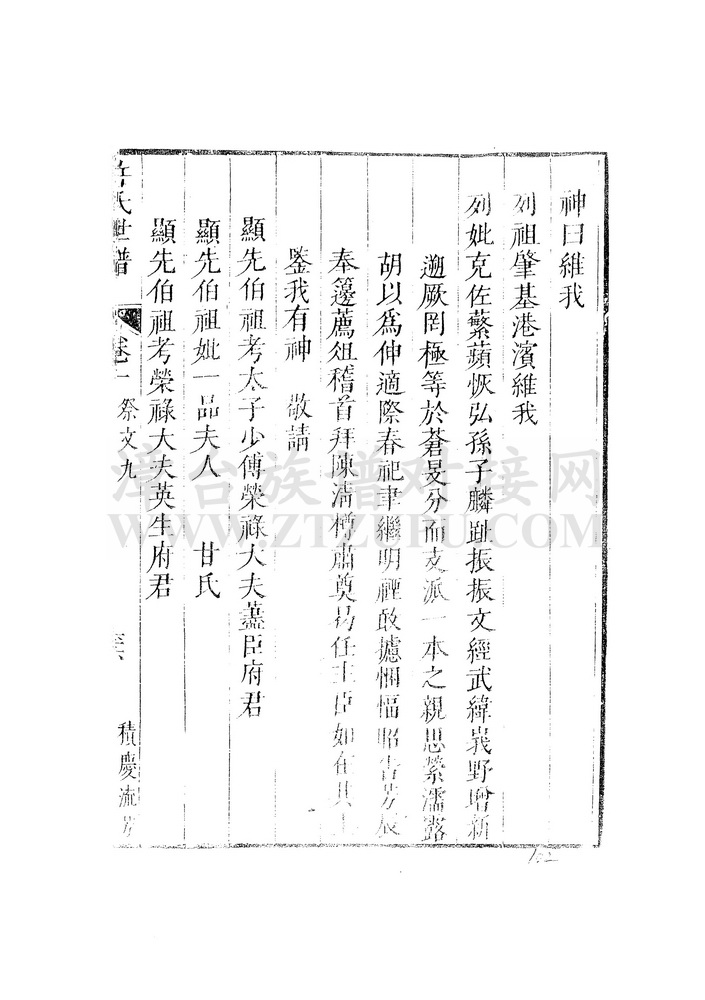 神曰維我
列祖肇基港濱維我
列妣克佐蘩蘋恢弘孫子麟趾振振文經武緯莪野增新
遡厥罔極等於蒼旻分而支派一本之親思縈濡露
胡以為伸適際春祀聿繼明禋敢攄悃愊昭告芳辰
奉籩薦俎稽首拜陳淸樽肅奠曷任主臣如在其上
鑒我有神 敬請
顯先伯祖考太子少傅榮祿大夫藎臣府君
顯先伯祖妣一品夫人 甘氏
顯先伯祖考榮祿大夫英生府君
氏世譜 卷一 祭文九 積慶流芳
漳台族谱对接网
WWW.ZTZUPU.COM